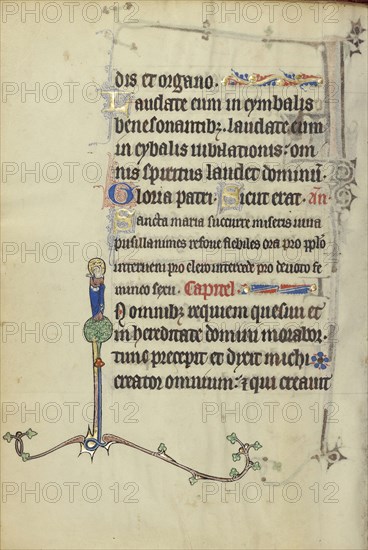 dis et organo.
Laudate eum in cymbalis
benesonantibꝫ. laudate eum
in cybalis iubilationis: om
nis spiritus laudet dominū.
Gloria patri. Sicut erat. añ.
Sancta maria succurre miseris iuua
pusillanimes refoue flebiles ora pro pp̄lo
interueni pro clero intercede pro deuoto fe
mineo sexu. Capitel
In omnibꝫ requiem quesiui et
in hereditate domini morabor.
tunc precepit et dixit michi
creator omnium: et qui creauit
PHOTO12